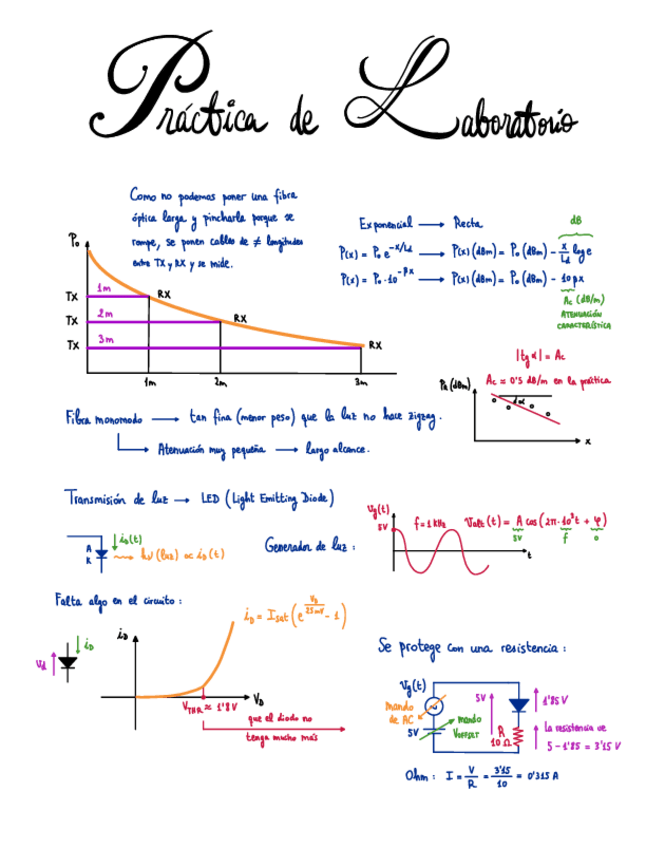 Práctica de Laboratorio
Como no podemos poner una fibra
óptica larga y pincharla porque se
rompe, se ponen cables de ≠ longitudes
entre TX y RX y se mide.
P₀
TX 1m RX
TX 2m RX
TX 3m RX
1m 2m 3m
Exponencial → Recta
dB
P(x) = P₀ e^(-x/Ld) → P(x) (dBm) = P₀ (dBm) - x/Ld log e
P(x) = P₀ · 10^(-βx) → P(x) (dBm) = P₀ (dBm) - 10βx
Ac (dB/m)
ATENUACIÓN
CARACTERÍSTICA
|tg α| = Ac
Ac = 0'5 dB/m en la práctica
PR (dBm)
α
x
Fibra monomodo → tan fina (menor peso) que la luz no hace zigzag.
→ Atenuación muy pequeña → largo alcance.
Transmisión de luz → LED (Light Emitting Diode)
A
K
iD(t)
hν (luz) ∝ iD(t)
Generador de luz:
Vg(t)
5V
f = 1 kHz
t
Valt (t) = A cos (2π · 10³t + φ)
5V f 0
Falta algo en el circuito:
Vd
iD
iD
iD = Isat (e^(VD/25mV) - 1)
VTHR ≈ 1'8 V
VD
que el diodo no
tenga mucho más
Se protege con una resistencia:
Vg(t)
mando
de AC
5V
mando
VOFFSET
5V
R
10 Ω
1'85 V
la resistencia ve
5 - 1'85 = 3'15 V
Ohm: I = V/R = 3'15/10 = 0'315 A